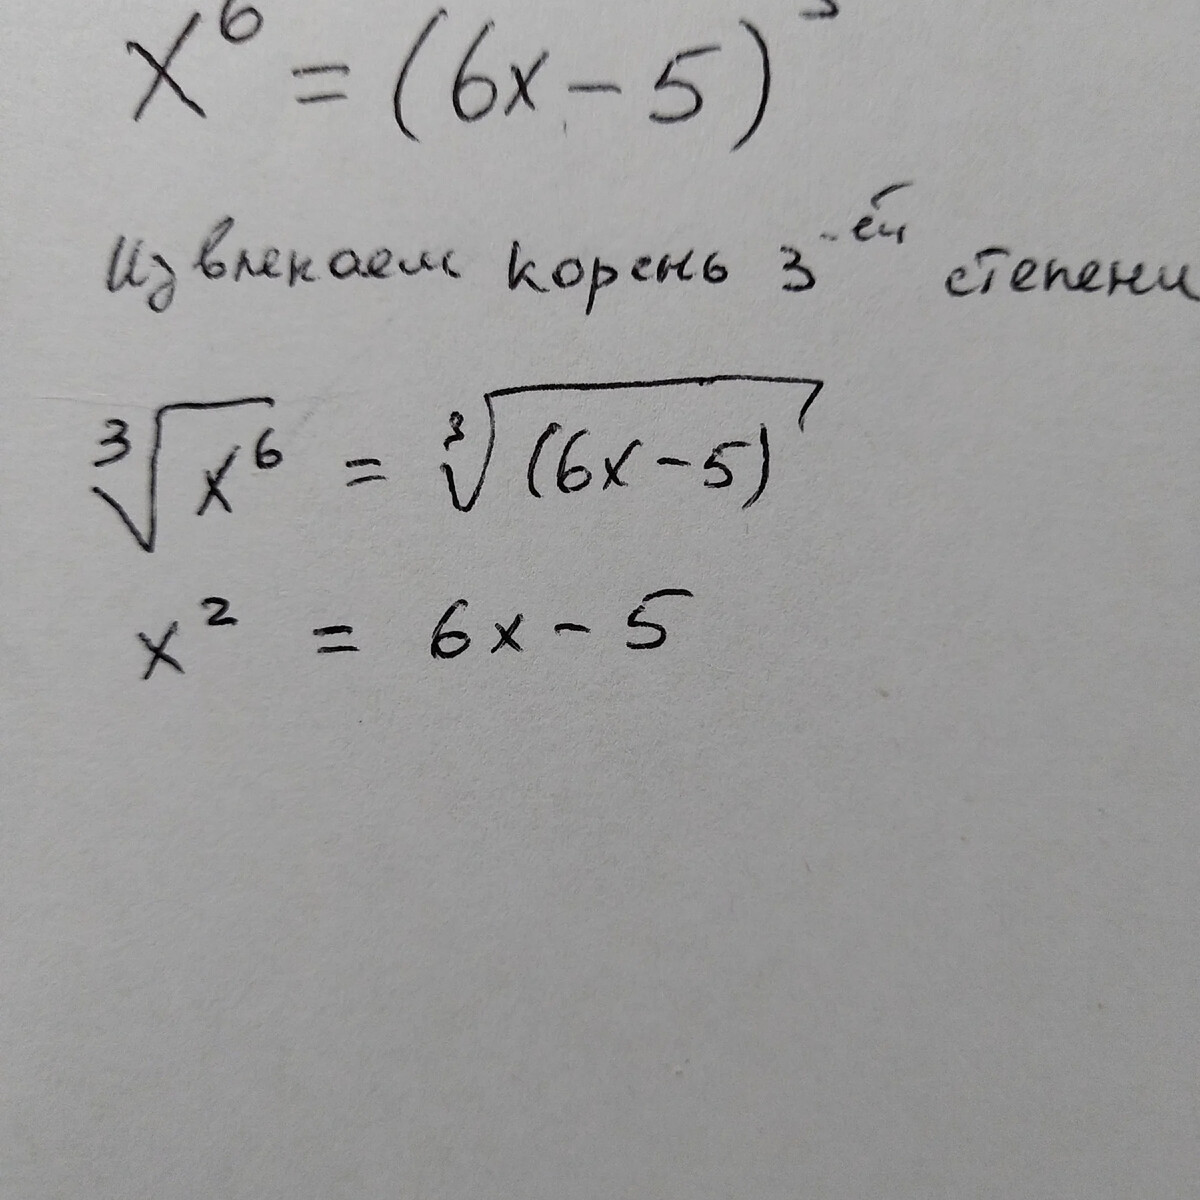 x⁶ = (6x − 5)³
Извлекаем корень 3-ей степени
³√x⁶ = ³√(6x − 5)
x² = 6x − 5